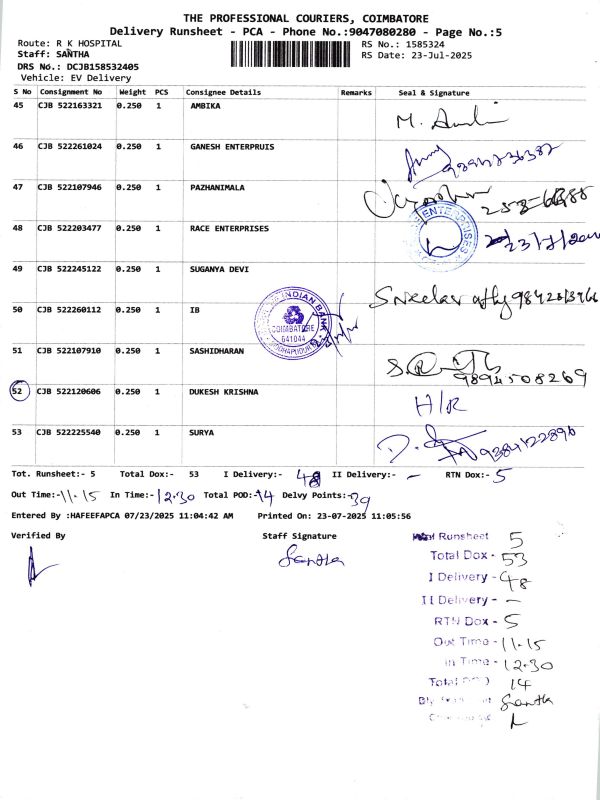 THE PROFESSIONAL COURIERS, COIMBATORE
Delivery Runsheet - PCA - Phone No.:9047080280 - Page No.:5
Route: R K HOSPITAL
Staff: SANTHA
DRS No.: DCJB158532405
Vehicle: EV Delivery
RS No.: 1585324
RS Date: 23-Jul-2025
S No Consignment No Weight PCS Consignee Details Remarks Seal & Signature
45 CJB 522163321 0.250 1 AMBIKA
46 CJB 522261024 0.250 1 GANESH ENTERPRUIS
47 CJB 522107946 0.250 1 PAZHANIMALA
48 CJB 522203477 0.250 1 RACE ENTERPRISES
ENTERPRISES
49 CJB 522245122 0.250 1 SUGANYA DEVI
50 CJB 522260112 0.250 1 IB
INDIAN BANK
COIMBATORE
641044
51 CJB 522107910 0.250 1 SASHIDHARAN
9894508269
52 CJB 522120606 0.250 1 DUKESH KRISHNA H/R
53 CJB 522225540 0.250 1 SURYA
Tot. Runsheet:- 5 Total Dox:- 53 I Delivery:- 48 II Delivery:- - RTN Dox:- 5
Out Time:- 11.15 In Time:- 12.30 Total POD:- 14 Delvy Points:- 39
Entered By :HAFEEFAPCA 07/23/2025 11:04:42 AM Printed On: 23-07-2025 11:05:56
Verified By Staff Signature
Santha
Runsheet 5
Total Dox - 53
I Delivery - 48
II Delivery - -
RTN Dox - 5
Out Time - 11.15
In Time - 12.30
Total POD 14
Santha